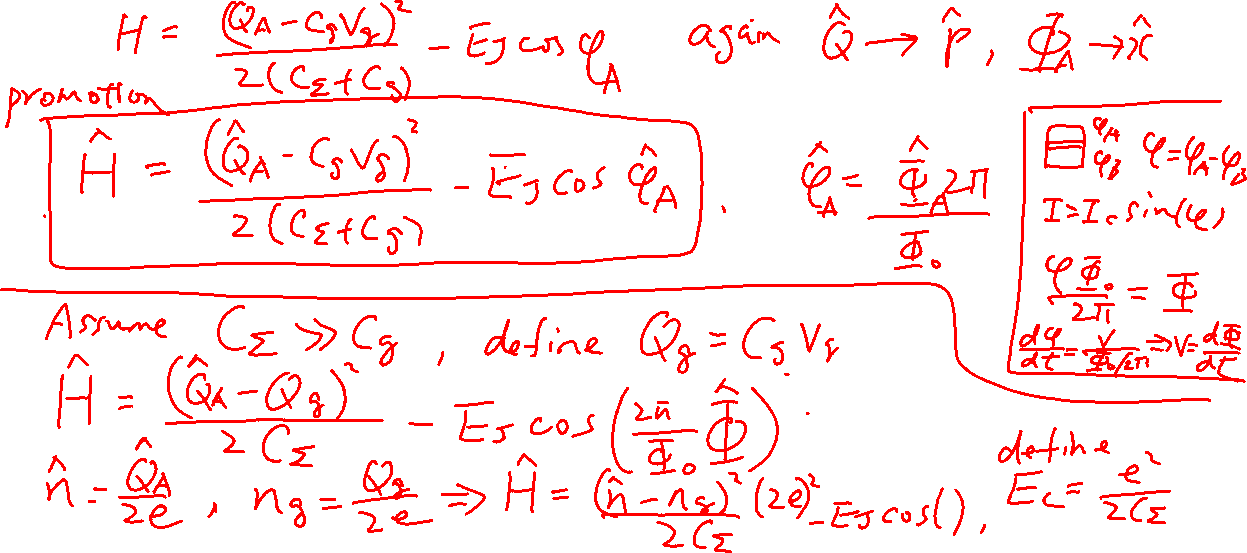 H = (Q_A - C_g V_g)² / 2(C_Σ + C_g) - E_J cos φ_A again Q̂ → p̂, Φ_A → x̂
promotion
Ĥ = (Q̂_A - C_g V_g)² / 2(C_Σ + C_g) - E_J cos φ̂_A , φ̂_A = Φ̂_A 2π / Φ_0
φ_A φ_B φ = φ_A - φ_B
I = I_c sin(φ)
φ Φ_0 / 2π = Φ
dφ/dt = V / Φ_0/2π ⇒ V = dΦ/dt
Assume C_Σ ≫ C_g , define Q_g = C_g V_g
Ĥ = (Q̂_A - Q_g)² / 2C_Σ - E_J cos(2π/Φ_0 Φ̂)
n̂ = Q̂_A / 2e , n_g = Q_g / 2e ⇒ Ĥ = (n̂ - n_g)² (2e)² / 2C_Σ - E_J cos( ) ,
define
E_C = e² / 2C_Σ